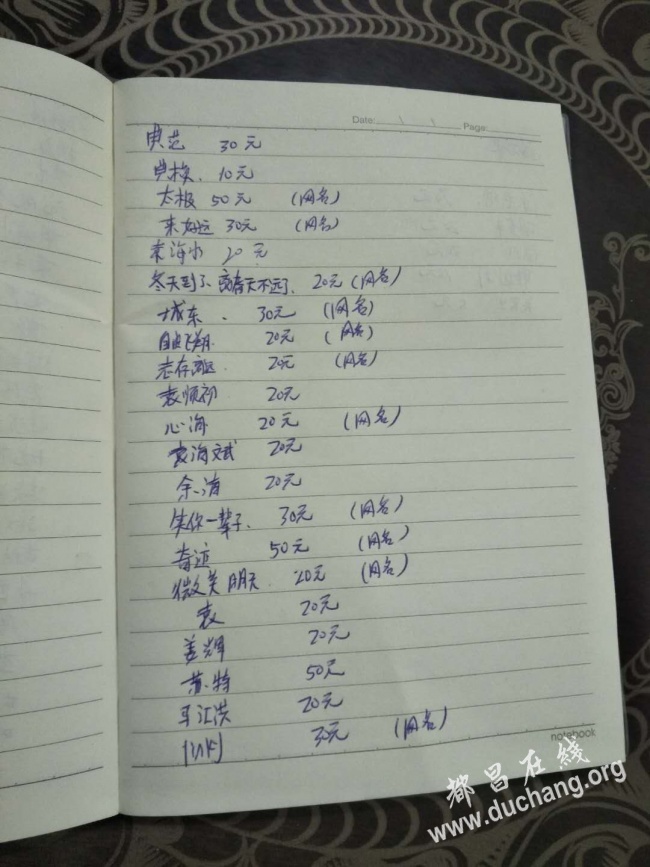 Date: / / Page:
典范 30元
典换. 10元
太极 50元 (网名)
来好运 30元 (网名)
袁海水 20元
冬天到了 春天不远了. 20元 (网名)
城东. 30元 (网名)
自由飞翔 20元 (网名)
志存高远 20元 (网名)
袁顺初 20元
心海 20元 (网名)
袁海斌 20元
余海 20元
笑你一辈子. 30元 (网名)
奇迹 50元 (网名)
微美明天. 20元 (网名)
袁 20元
姜辉 20元
苏特 50元
汇洪 20元
30元 (网名)
notebook
都昌在线
www.duchang.org